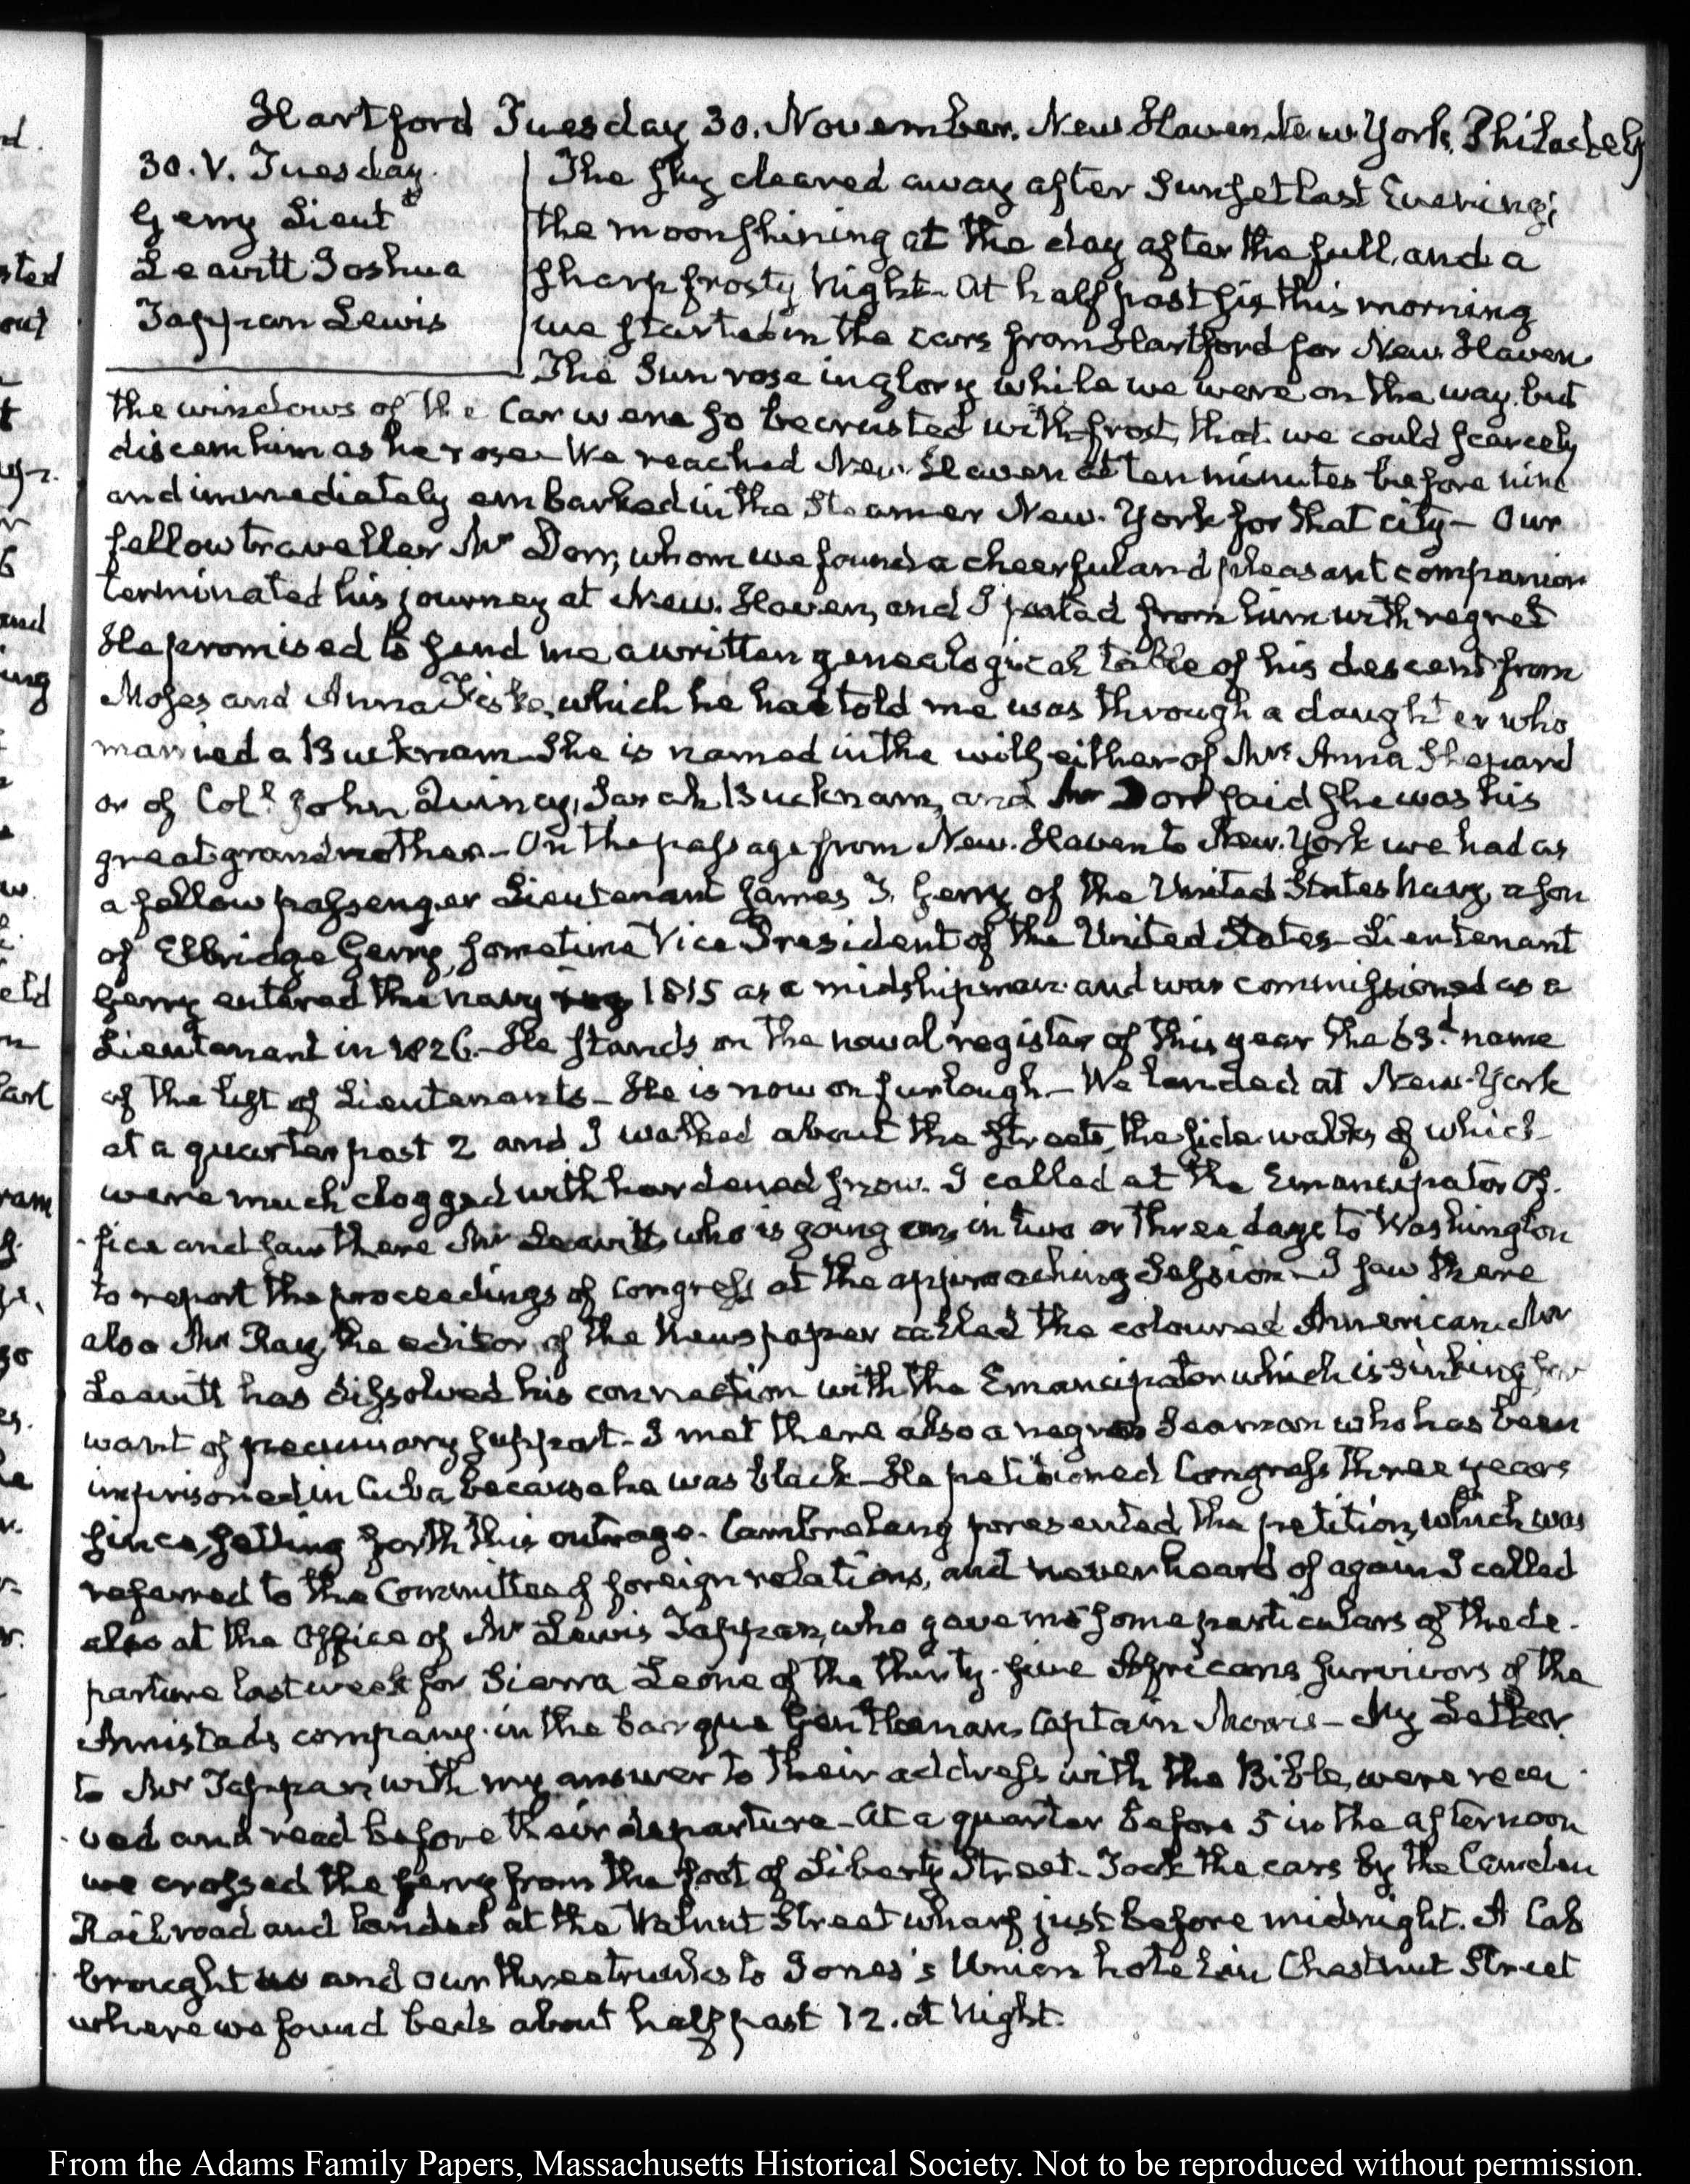 Hartford Tuesday 30. November. New Haven. New York. Philadelp
30. V. Tuesday.
Gerry Lieut.t
Leavitt Joshua
Tappan Lewis
The sky cleared away after Sunset last Evening;
the moon shining at the day after the full, and a
sharp frosty Night. At half past six this morning
we started in the cars from Hartford for New Haven
The Sun rose in glory while we were on the way, but
the windows of the Car were so becrusted with frost, that we could scarcely
discern him as he rose. We reached New-Haven at ten minutes before nine
and immediately embarked in the Steamer New-York for that city— Our
fellow traveller Mr Dorr, whom we found a cheerful and pleasant companion
terminated his journey at New-Haven, and I parted from him with regret
He promised to send me a written genealogical table of his descent from
Moses and Anna Fiske, which he had told me was through a daughter who
married a Bucknam. She is named in the will either of Mrs Anna Shepard
or of Coll John Quincy, Sarah Bucknam, and Mr Dorr said she was his
great grandmother— On the passage from New-Haven to New-York we had as
a fellow passenger Lieutenant James T. Gerry of the United States Navy, a son
of Elbridge Gerry, sometime Vice President of the United States— Lieutenant
Gerry entered the navy 1815 as a midshipman and was commissioned as a
Lieutenant in 1826.— He stands on the naval register of this year the 63.d name
of the list of Lieutenants— He is now on furlough— We landed at New-York
at a quarter past 2 and I walked about the Streets, the side walks of which
were much clogged with hardened snow. I called at the Emancipator Of-
fice and saw there Mr Leavitt, who is going on, in two or three days to Washington
to report the proceedings of Congress at the approaching Session— I saw there
also Mr Ray, the editor of the Newspaper called the coloured American. Mr
Leavitt has dissolved his connection with the Emancipator which is sinking for
want of pecuniary support— I met there also a negro Seaman who has been
imprisoned in Cuba because he was black— He petitioned Congress three years
since, setting forth this outrage. Cambreleng presented the petition, which was
referred to the Committee of foreign relations, and never heard of again I called
also at the Office of Mr Lewis Tappan, who gave me some particulars of the de-
parture last week for Sierra Leone of the thirty-five Africans survivors of the
Amistad's company in the barque Gentleman, Captain Morris— My Letter
to Mr Tappan, with my answer to their address with the Bible, were recei-
ved and read before their departure— At a quarter before 5 in the afternoon
we crossed the ferry from the foot of Liberty Street. Took the cars by the Camden
Railroad and landed at the Walnut Street wharf just before midnight. A Cab
brought us and our three trunks to Jones's Union hotel in Chestnut Street
where we found beds about half past 12. at Night.
From the Adams Family Papers, Massachusetts Historical Society. Not to be reproduced without permission.